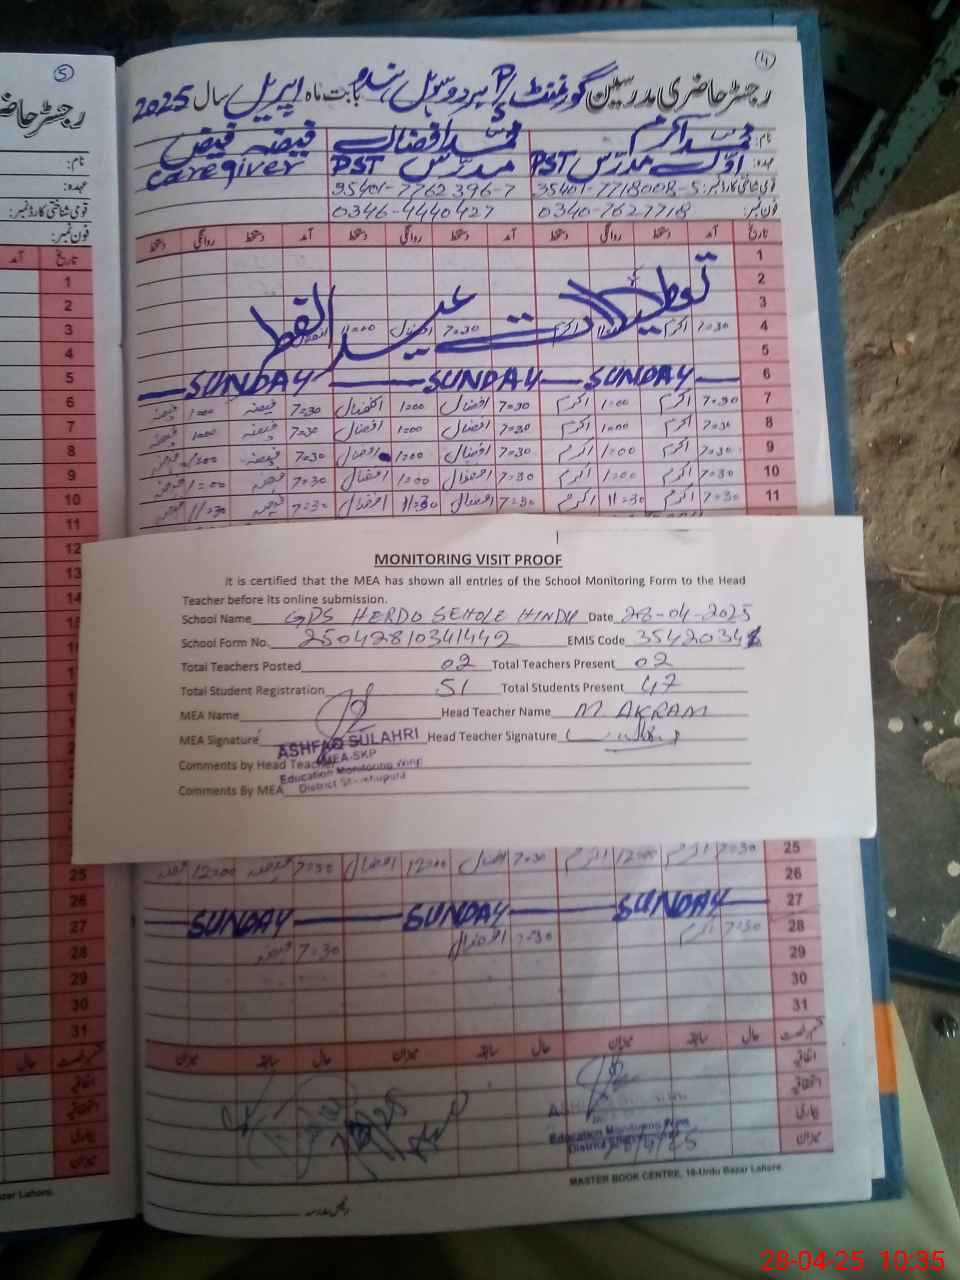 رجسٹر حاضری مدرسین گورنمنٹ P/S ہردو سہول ہندو بابت ماہ اپریل سال 2025
نام: محمد اکرم محمد افضال فیضہ فیض
عہدہ: اول مدرس PST مدرس PST caregiver
قومی شناختی کارڈ نمبر: 35401-7718008-5 35401-7762396-7
فون نمبر: 0340-7627718 0346-4440427
تاریخ آمد دستخط روانگی دستخط آمد دستخط روانگی دستخط آمد دستخط روانگی دستخط
1
2
3
تعطیلات عید الفطر
4 7:30 اکرم 11:00 اکرم 7:30 افضال 11:00
5
6 SUNDAY SUNDAY SUNDAY
7 7:30 اکرم 1:00 اکرم 7:30 افضال 1:00 افضال 7:30 فیضہ 1:00 فیضہ
8 7:30 اکرم 1:00 اکرم 7:30 افضال 1:00 افضال 7:30 فیضہ 1:00 فیضہ
9 7:30 اکرم 1:00 اکرم 7:30 افضال 1:00 افضال 7:30 فیضہ 1:00 فیضہ
10 7:30 اکرم 1:00 اکرم 7:30 افضال 1:00 افضال 7:30 فیضہ 1:00 فیضہ
11 7:30 اکرم 11:30 اکرم 7:30 افضال 11:30 افضال 7:30 فیضہ 11:30 فیضہ
MONITORING VISIT PROOF
It is certified that the MEA has shown all entries of the School Monitoring Form to the Head
Teacher before its online submission.
School Name GPS HERDO SEHOLE HINDU Date 28-04-2025
School Form No. 25042810341442 EMIS Code 35420341
Total Teachers Posted 02 Total Teachers Present 02
Total Student Registration 51 Total Students Present 47
MEA Name Head Teacher Name M AKRAM
MEA Signature Head Teacher Signature
ASHFAQ SULAHRI
MEA-SKP
Education Monitoring Wing
District Sheikhupura
Comments by Head Teacher
Comments By MEA
25 7:30 اکرم 12:00 اکرم 7:30 افضال 12:00 افضال 7:30 فیضہ 12:00 فیضہ
26
27 SUNDAY SUNDAY SUNDAY
28 7:30 اکرم 7:30 افضال 7:30 فیضہ
29
30
31
قسم رخصت حال سابقہ میزان حال سابقہ میزان حال سابقہ میزان
اتفاقیہ
استحقاقیہ
بیماری
میزان
Education Monitoring Wing
MASTER BOOK CENTRE, 16-Urdu Bazar Lahore
5
رجسٹر حاضر
نام:
عہدہ:
قومی شناختی کارڈ نمبر:
فون نمبر:
تاریخ آمد
1
2
3
4
5
6
7
8
9
10
11
12
13
14
25
26
27
28
29
30
31
قسم رخصت حال
اتفاقیہ
استحقاقیہ
بیماری
میزان
zar Lahore.
28-04-25 10:35